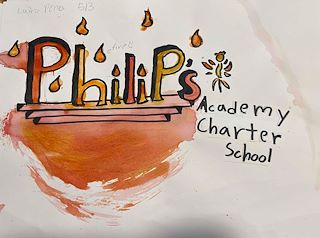 Philip's
Academy
Charter
School